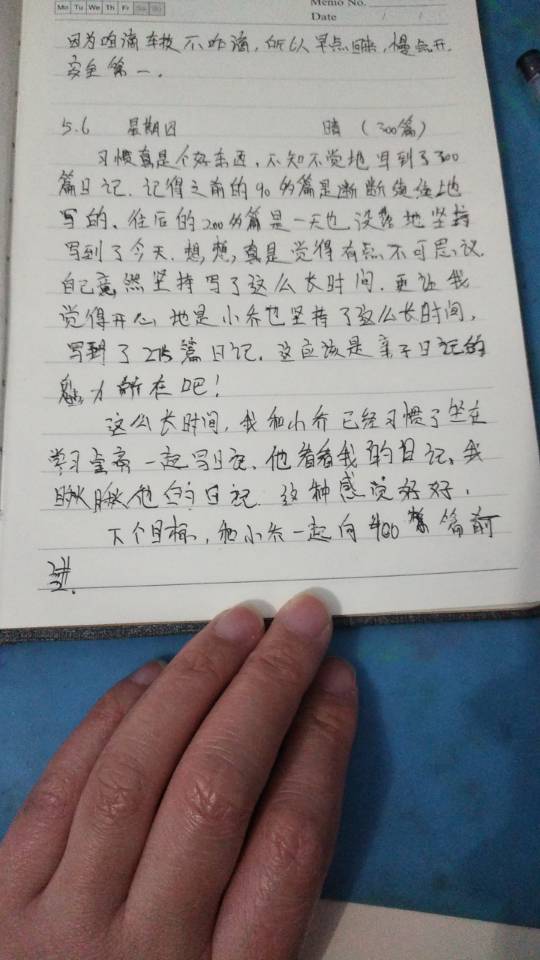 Mo Tu We Th Fr Sa Su
Memo No.
Date / /
因为咱滴车技不咋滴,所以早点回，慢点开.
安全第一.
5.6 星期四 晴 (300篇)
习惯真是个好东西,不知不觉地写到了300
篇日记.记得之前的90多篇是断断续续地
写的、往后的200多篇是一天也没落地坚持
写到了今天.想,想,真是觉得有点不可思议.
自己竟然坚持写了这么长时间.更让我
觉得开心地是小乔也坚持了这么长时间,
写到了215篇日记.这应该是亲子日记的
魅力所在吧!
这么长时间,我和小乔已经习惯了坐在
学习桌旁一起写日记.他看看我的日记、我
瞅瞅他的日记.这种感觉好好.
下个目标,和小乔一起向400篇前
进.